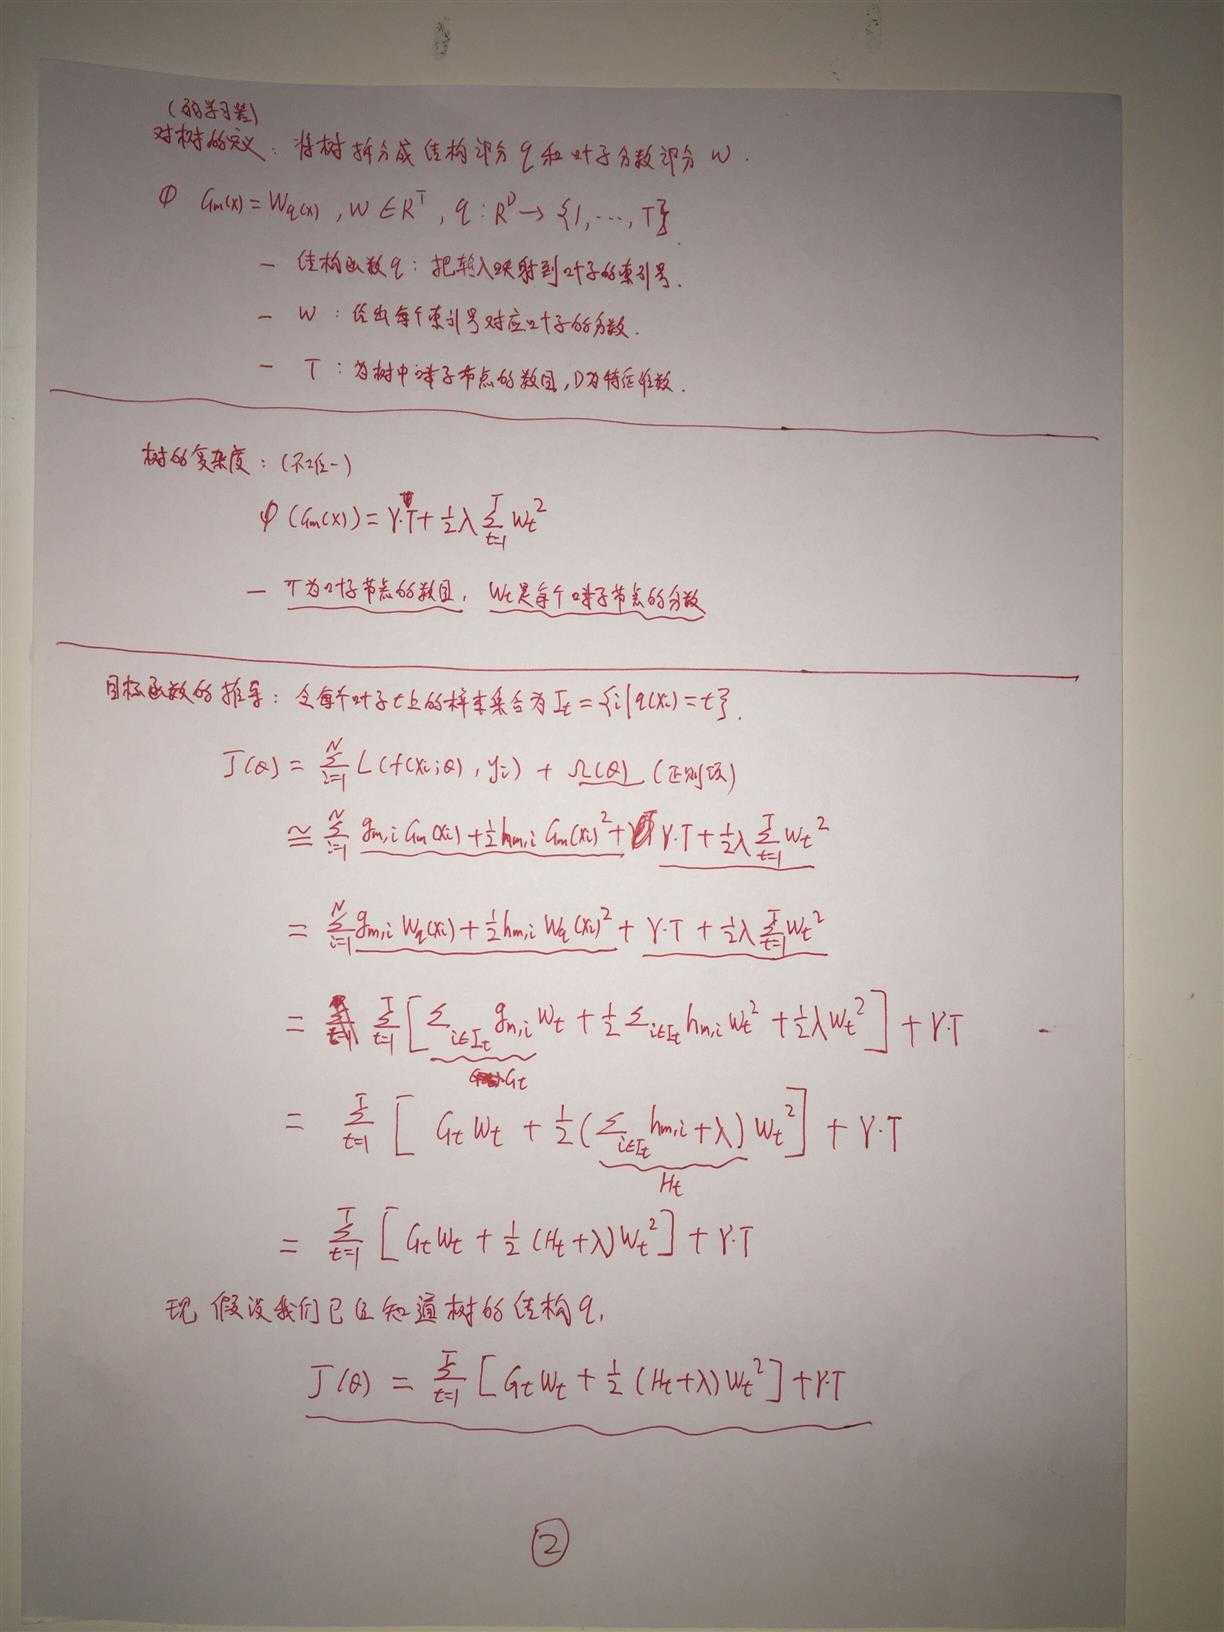 (弱学习器)
对树的定义: 将树拆分成结构部分 q 和叶子分数部分 w.
① Gm(x) = Wq(x), W ∈ R^T, q: R^D → {1, ⋯, T}
— 结构函数 q: 把输入映射到叶子的索引号.
— W: 给出每个索引号对应叶子的分数.
— T: 为树中叶子节点的数目, D为特征维数.
树的复杂度: (不唯一)
φ(Gm(x)) = γ·T + ½λ Σ_{t=1}^{T} Wt²
— T为叶子节点的数目, Wt是每个叶子节点的分数
目标函数的推导: 令每个叶子t上的样本集合为 It = {i | q(xi) = t}.
J(θ) = Σ_{i=1}^{N} L(f(xi;θ), yi) + Ω(θ) (正则项)
≃ Σ_{i=1}^{N} gm,i Gm(xi) + ½ hm,i Gm(xi)² + γ·T + ½λ Σ_{t=1}^{T} Wt²
= Σ_{i=1}^{N} gm,i Wq(xi) + ½ hm,i Wq(xi)² + γ·T + ½λ Σ_{t=1}^{T} Wt²
= Σ_{t=1}^{T} [Σ_{i∈It} gm,i Wt + ½ Σ_{i∈It} hm,i Wt² + ½λWt²] + γ·T
Gt
= Σ_{t=1}^{T} [Gt Wt + ½(Σ_{i∈It} hm,i + λ) Wt²] + γ·T
Ht
= Σ_{t=1}^{T} [Gt Wt + ½ (Ht+λ) Wt²] + γ·T
现假设我们已经知道树的结构 q,
J(θ) = Σ_{t=1}^{T} [Gt Wt + ½ (Ht+λ) Wt²] + γ·T
②